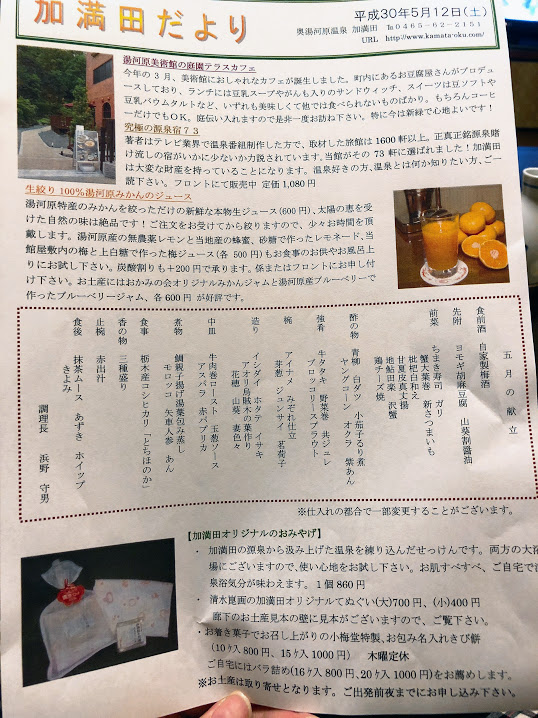 加満田だより
平成30年5月12日(土)
奥湯河原温泉 加満田 ℡0465-62-2151
URL http://www.kamata-oku.com/
湯河原美術館の庭園テラスカフェ
今年の3月、美術館におしゃれなカフェが誕生しました。町内にあるお豆腐屋さんがプロデュ
ースしており、ランチには豆乳スープやがんも入りのサンドウィッチ、スイーツは豆ソフトや
豆乳バウムタルトなど、いずれも美味しくて他では食べられないものばかり。もちろんコーヒ
ーだけでもOK。庭伝い入れますので是非一度お訪ね下さい。特に今は新緑で心地よいです！
究極の源泉宿73
著者はテレビ業界で温泉番組制作した方で、取材した旅館は1600軒以上。正真正銘源泉賭
け流しの宿がいかに少ないか力説されています。当館がその73軒に選ばれました！加満田
は大変な財産を持っていることになります。温泉好きの方、温泉とは何か知りたい方、ご一
読下さい。フロントにて販売中 定価1,080円
生絞り100%湯河原みかんのジュース
湯河原特産のみかんを絞っただけの新鮮な本物生ジュース(600円)、太陽の恵を受
けた自然の味は絶品です！ご注文をお受けてから絞りますので、少々お時間を頂
戴します。湯河原産の無農薬レモンと当地産の蜂蜜、砂糖で作ったレモネード、当
館屋敷内の梅と上白糖で作った梅ジュース(各500円)もお食事のお供やお風呂上
りにお試し下さい。炭酸割りも+200円で承ります。係またはフロントにお申し付
け下さい。お土産にはおかみの会オリジナルみかんジャムと湯河原産ブルーベリーで
作ったブルーベリージャム、各600円 が好評です。
五月の献立
食前酒 自家製梅酒
先附 ヨモギ胡麻豆腐 山葵割醤油
前菜 ちまき寿司 ガリ
蟹大葉巻 新さつまいも
枇杷白和え
甘夏皮真丈揚
地鮎田楽 沢蟹
鶏チーズ焼
酢の物 青柳 白ダツ 小茄子るり煮
ヤングコーン オクラ 紫あん
強肴 牛タタキ 野菜巻 共ジュレ
ブロッコリースプラウト
椀 アイナメ みぞれ仕立
芽葱 ジュンサイ 茗荷子
造り イシダイ ホタテ イサキ
アオリ烏賊木の葉作り
花穂 山葵 妻色々
中皿 牛肉巻ロースト 玉葱ソース
アスパラ 赤パプリカ
煮物 鯛親子揚げ湯葉包み蒸し
モロッコ 矢車人参 あん
食事 栃木産コシヒカリ「とちほのか」
香の物 三種盛り
止椀 赤出汁
食後 抹茶ムース あずき ホイップ
きよみ
調理長 浜野 守男
※仕入れの都合で一部変更することがございます。
【加満田オリジナルのおみやげ】
・ 加満田の源泉から汲み上げた温泉を練り込んだせっけんです。両方の大浴
場にございますので、使い心地をお試し下さい。お肌すべすべ、ご自宅で温
泉浴気分が味わえます。1個860円
・ 清水崑画の加満田オリジナルてぬぐい(大)700円、(小)400円
廊下のお土産見本の壁に見本がございますので、ご覧下さい。
・ お着き菓子でお召し上がりの小梅堂特製、お包み名入れきび餅
(10ヶ入800円、15ヶ入1000円) 木曜定休
ご自宅にはバラ詰め(16ヶ入800円、20ヶ入1000円)をお薦めします。
※お土産は取り寄せとなります。ご出発前夜までにお申し込み下さい。